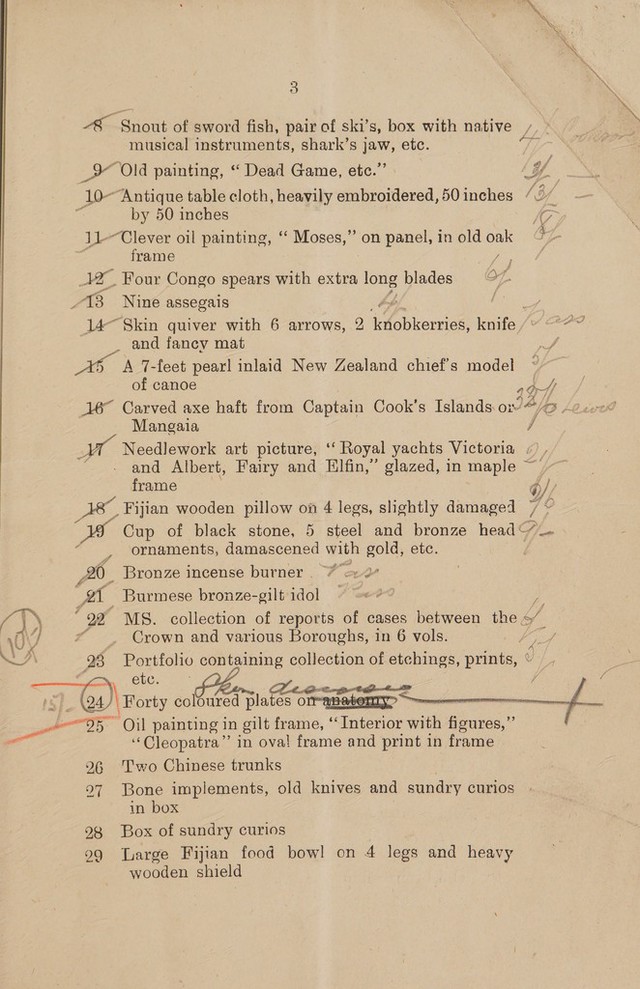 3
8 Snout of sword fish, pair of ski's, box with native
musical instruments, shark's jaw, etc.
9 Old painting, “ Dead Game, etc.”
10 Antique table cloth, heavily embroidered, 50 inches
by 50 inches
11 Clever oil painting, “ Moses,” on panel, in old oak
frame
12 Four Congo spears with extra long blades
13 Nine assegais
14 Skin quiver with 6 arrows, 2 knobkerries, knife
and fancy mat
15 A 7-feet pearl inlaid New Zealand chief's model
of canoe
16 Carved axe haft from Captain Cook's Islands or
Mangaia
17 Needlework art picture, “ Royal yachts Victoria
and Albert, Fairy and Elfin,” glazed, in maple
frame
18 Fijian wooden pillow on 4 legs, slightly damaged
19 Cup of black stone, 5 steel and bronze head
ornaments, damascened with gold, etc.
20 Bronze incense burner
21 Burmese bronze-gilt idol
22 MS. collection of reports of cases between the
Crown and various Boroughs, in 6 vols.
23 Portfolio containing collection of etchings, prints,
etc.
Skin diseases
24 Forty coloured plates on anatomy
25 Oil painting in gilt frame, “Interior with figures,”
“Cleopatra” in oval frame and print in frame
26 Two Chinese trunks
27 Bone implements, old knives and sundry curios
in box
28 Box of sundry curios
29 Large Fijian food bowl on 4 legs and heavy
wooden shield